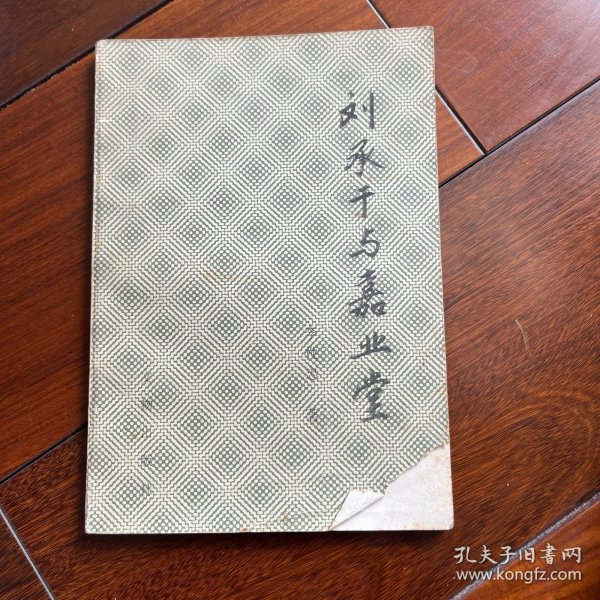 刘承干与嘉业堂
文物出版社
孔夫子旧書网
www.kongfz.com